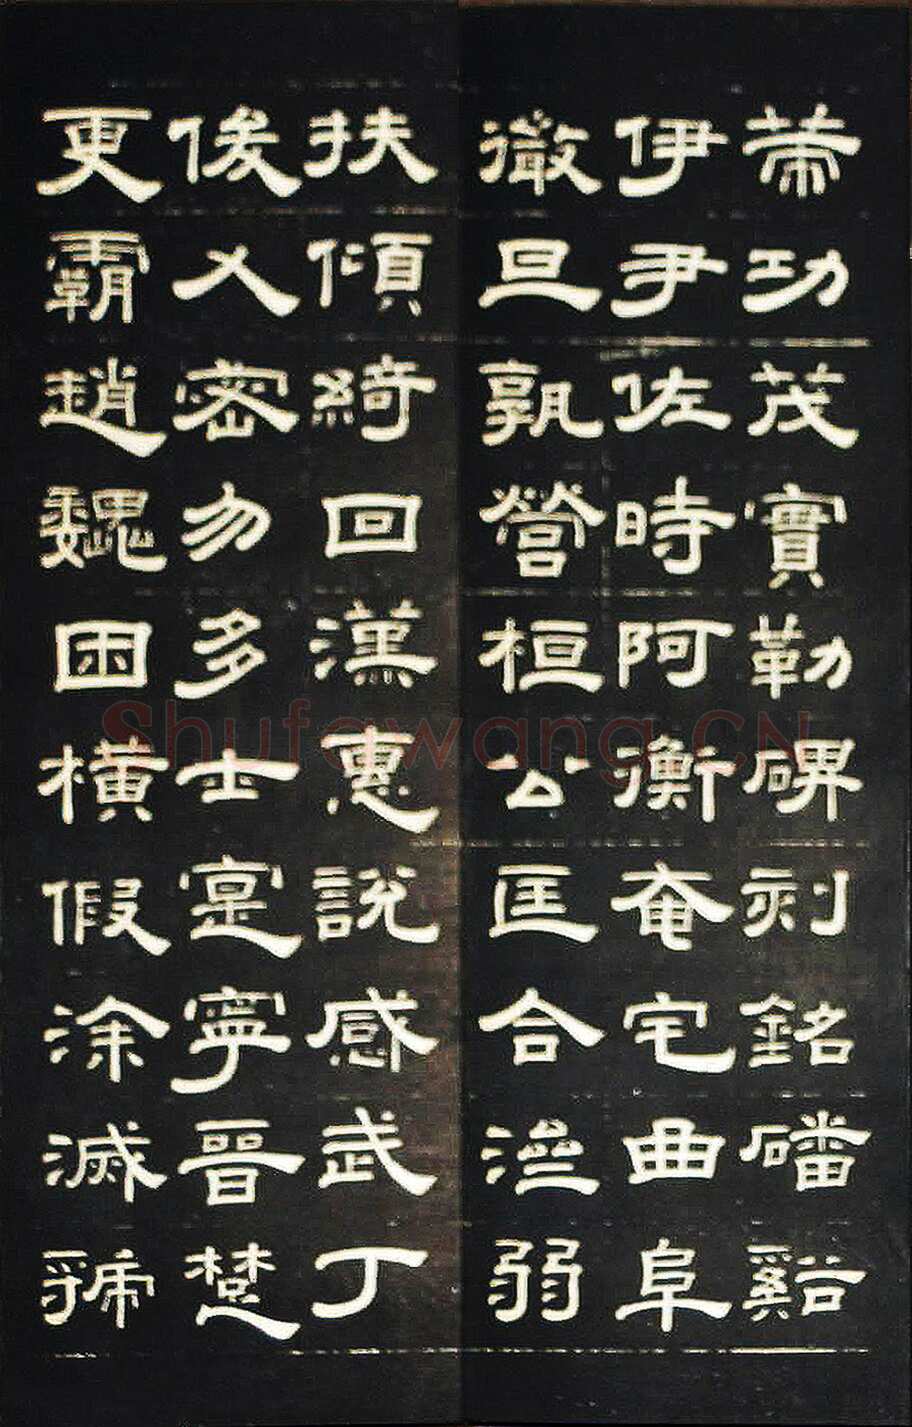 策功茂實勒碑刻銘磻谿
伊尹佐時阿衡奄宅曲阜
微旦孰營桓公匡合濟弱
扶傾綺回漢惠說感武丁
俊乂密勿多士寔寧晉楚
更霸趙魏困橫假涂滅虢
Shufawang.CN